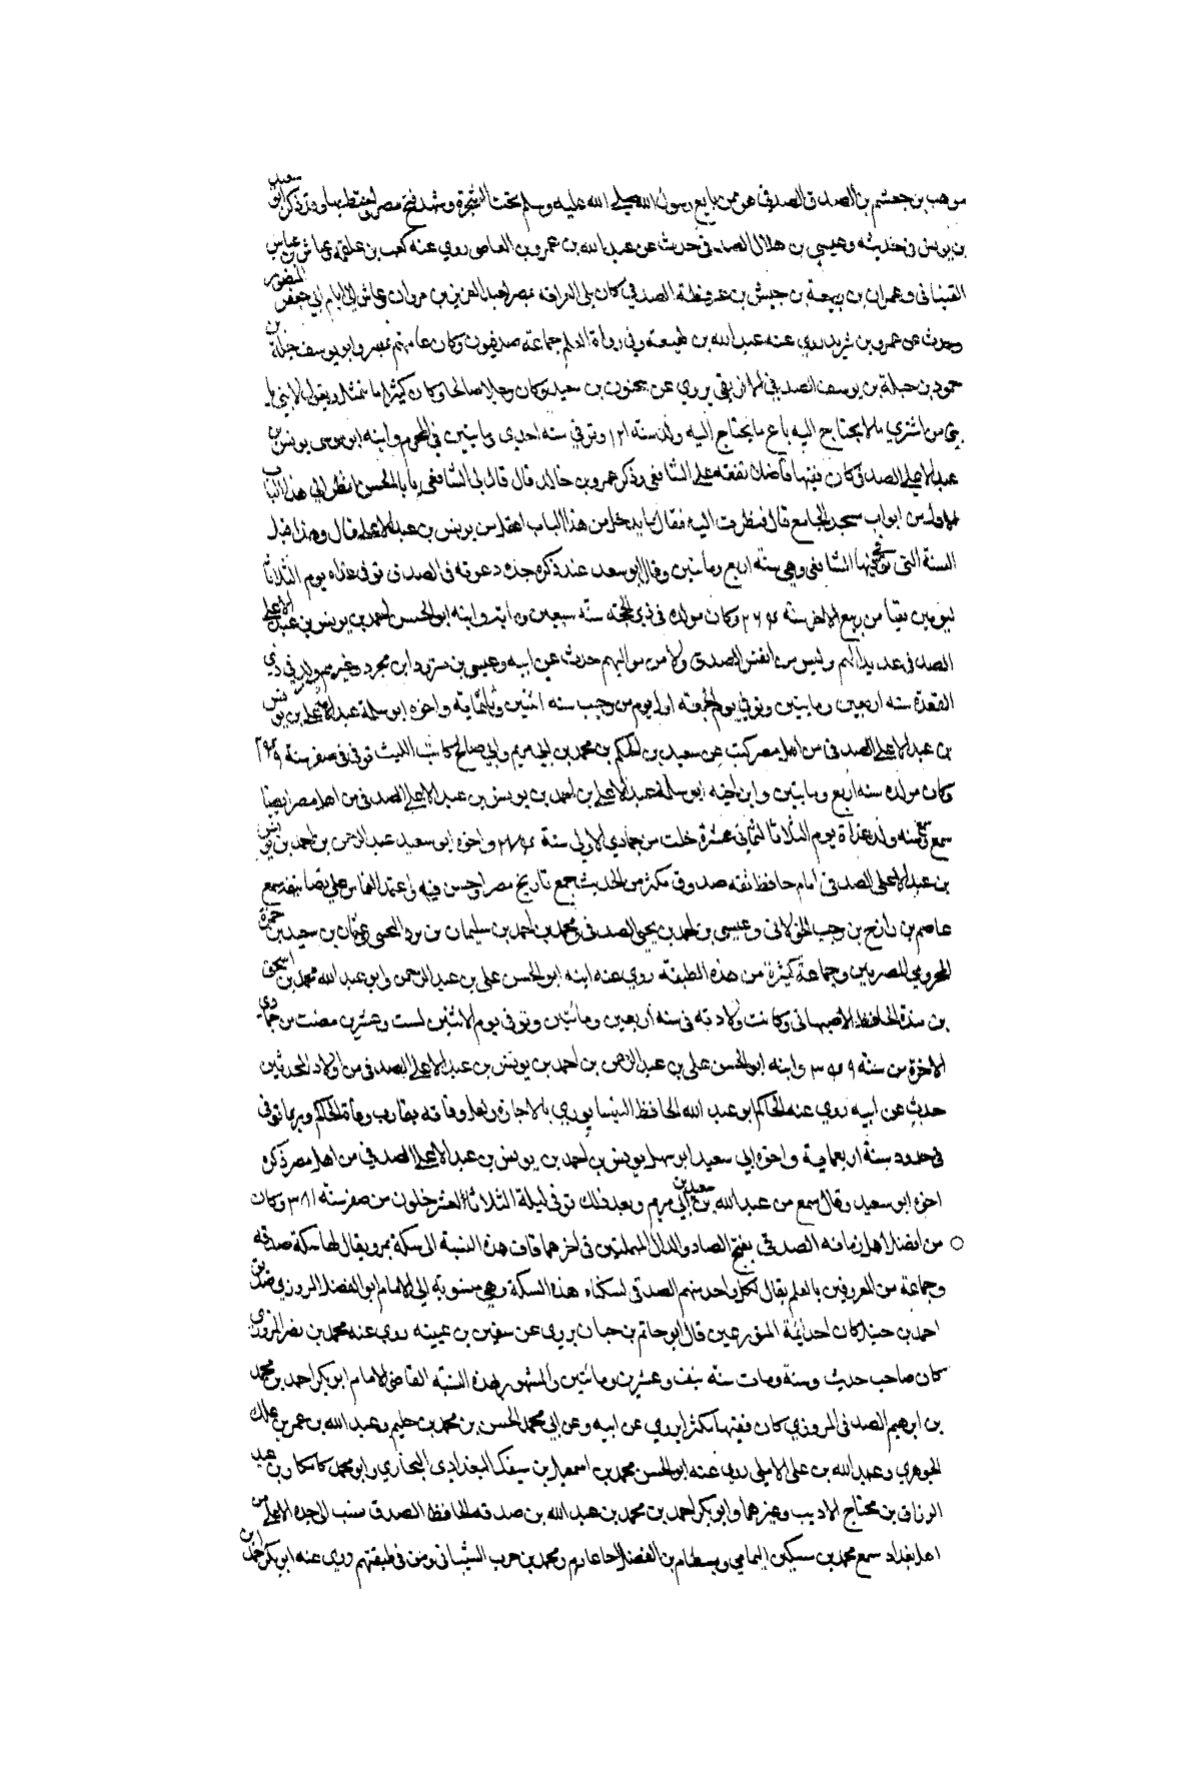 موهب بن جعشم بن الصدف الصدفي هو ممن بايع رسول الله صلى الله عليه وسلم تحت الشجرة وشهد فتح مصر واختط بها وقد ذكر ابو سعيد
بن يونس في حديثه وعيسى بن هلال الصدفي حدث عن عبد الله بن عمرو بن العاص روى عنه كعب بن علقمة وعياش بن عباس
القتباني وعمران بن ربيعة بن حبيش بن عرفطة الصدفي كان يلي العرافة بمصر لعبد العزيز بن مروان وعاش الى ايام ابي جعفر المنصور
وحدث عن عمرو بن شريد روى عنه عبد الله بن لهيعة وفي رواة العلم جماعة صدفيون وكان عامتهم بمصر وابو يوسف جبلة بن
حمود بن جبلة بن يوسف الصدفي يروي عن سحنون بن سعيد وكان رجلا صالحا وكان كثيرا ما يتمثل ويقول لابنه يا
بني من اشترى ما لا يحتاج اليه باع ما يحتاج اليه ولد سنة ١٢١ وتوفي سنة احدى ومايتين في المحرم وابنه ابو موسى يونس بن
عبد الاعلى الصدفي كان فقيها فاضلا تفقه على الشافعي وذكر عمرو بن خالد قال قال لي الشافعي يا ابا الحسن انظر الى هذا الباب
الاول من ابواب مسجد الجامع قال فنظرت اليه فقال ما يدخل من هذا الباب اعقل من يونس بن عبد الاعلى قال وهذا قبل
السنة التي توفي فيها الشافعي وهي سنة اربع ومأتين وقال ابو سعيد عند ذكره جده دعوته في الصدف توفي غداة يوم الثلاثا
ليومين بقيا من ربيع الاخر سنة ٢٦٤ وكان مولده في ذي الحجة سنة سبعين ومأية وابنه ابو الحسن احمد بن يونس بن عبد الاعلى
الصدفي عديد لهم وليس من انفس الصدف ولا من مواليهم حدث عن ابيه وعيسى بن مثرود وابن مجرد وغيرهم ولد في ذي
القعدة سنة اربعين ومايتين وتوفي يوم الجمعة اول يوم من رجب سنة اثنين وثلثماية واخوه ابو سلمة عبد الاعلى بن يونس
بن عبد الاعلى الصدفي من اهل مصر كتب عن سعيد بن الحكم بن محمد بن ابي مريم وابي صالح كاتب الليث توفي في صفر سنة ٢٩٤
وكان مولده سنة اربع ومايتين وابن اخيه ابو سلمة عبد الاعلى بن احمد بن يونس بن عبد الاعلى الصدفي من اهل مصر ايضا
سمع منه ولد غداة يوم الثلاثا لثماني عشرة خلت من جمادي الاولى سنة ٢٨٤ واخوه ابو سعيد عبد الرحمن بن احمد بن يونس
بن عبد الاعلى الصدفي امام حافظ ثقه صدوق مكثر من الحديث جمع تاريخ مصر واحسن فيه واعتمد الناس على تصانيفه سمع
عاصم بن رازح بن رجب الخولاني وعيسى بن احمد بن يحيى الصدفي ومحمد بن احمد بن سليمان بن برد التجيبي وعثمان بن سعيد بن حمزة
المصريين وجماعة كثيرة من هذه الطبقة روى عنه ابنه ابو الحسن علي بن عبد الرحمن وابو عبد الله محمد بن اسحق
بن مندة الحافظ الاصبهاني وكانت ولادته في سنة اربعين ومأتين وتوفي يوم الاثنين لست وعشرين مضت من جمادى
الاخرة من سنة ٣٤٩ وابنه ابو الحسن علي بن عبد الرحمن بن احمد بن يونس بن عبد الاعلى الصدفي من اولاد المحدثين
حدث عن ابيه روى عنه الحاكم ابو عبد الله الحافظ النيسابوري بالاجازة ولعل وفاته يقارب وفاة الحاكم وربما توفي
في حدود سنة اربعماية واخوه ابي سعيد ابو سهل يونس بن احمد بن يونس بن عبد الاعلى الصدفي من اهل مصر ذكره
اخوه ابو سعيد وقال سمع من عبد الله بن سعيد بن ابي مريم وبعد ذلك توفي ليلة الثلاثا لعشر خلون من صفر سنة ٣٨١ وكان
من افضل اهل زمانه ○ الصدقي بفتح الصاد والدال المهملتين في اخرهما قاف هذه النسبة الى سكة بمرو يقال لها سكة صدقه
وجماعة من المعروفين بالعلم يقال لكل واحد منهم الصدقي لسكناه هذه السكة وهي منسوبة الى الامام ابو الفضل المروزي صدقة بن
احمد بن حنبل كان احد ائمة المتورعين قال ابو حاتم بن حبان يروي عن سفين بن عيينة روى عنه محمد بن نصر المروزي
كان صاحب حديث وسنة ومات سنة نيف وعشرين ومأتين والمشهور بهذه النسبة القاضي الامام ابو بكر احمد بن محمد
بن ابرهيم الصدقي المروزي كان فقيها مكثرا يروي عن ابيه وعن ابي محمد الحسن بن محمد بن حليم وعبد الله بن عمر بن علك
الجوهري وعبد الله بن علي الاملي روى عنه ابو الحسن محمد بن اسمعيل بن سبنك البغدادي البخاري وابو محمد كامكار بن عبد
الرزاق بن محتاج الاديب وغيرهما وابو بكر احمد بن محمد بن عبد الله بن صدقه الحافظ الصدقي نسب الى جده الاعلى من
اهل بغداد سمع محمد بن مسكين اليمامي وبسطام بن الفضل اخا عارم ومحمد بن حرب الشيباني ومن في طبقتهم روى عنه ابو بكر احمد ابن